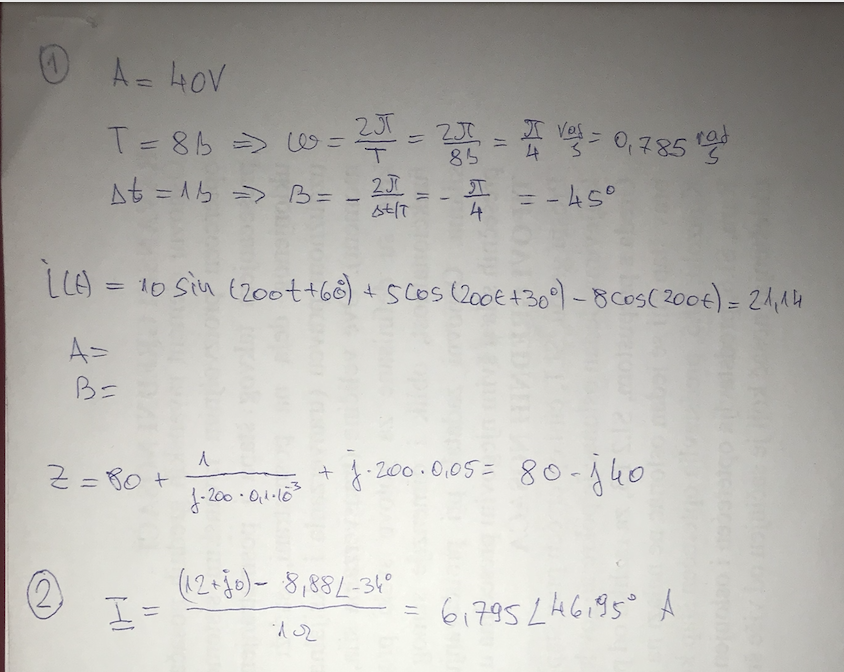 ①
A = 40V
T = 8s => ω = 2π/T = 2π/8s = π/4 rad/s = 0,785 rad/s
Δt = 1s => B = - 2π/Δt/T = - π/4 = -45°
i(t) = 10 sin (200t+60°) + 5cos(200t+30°) - 8cos(200t) = 21,14
A =
B =
Z = 80 + 1/j·200·0,1·10⁻³ + j·200·0,05 = 80 - j40
②
I = (12+j0) - 8,88∠-34°/1Ω = 6,795∠46,95° A